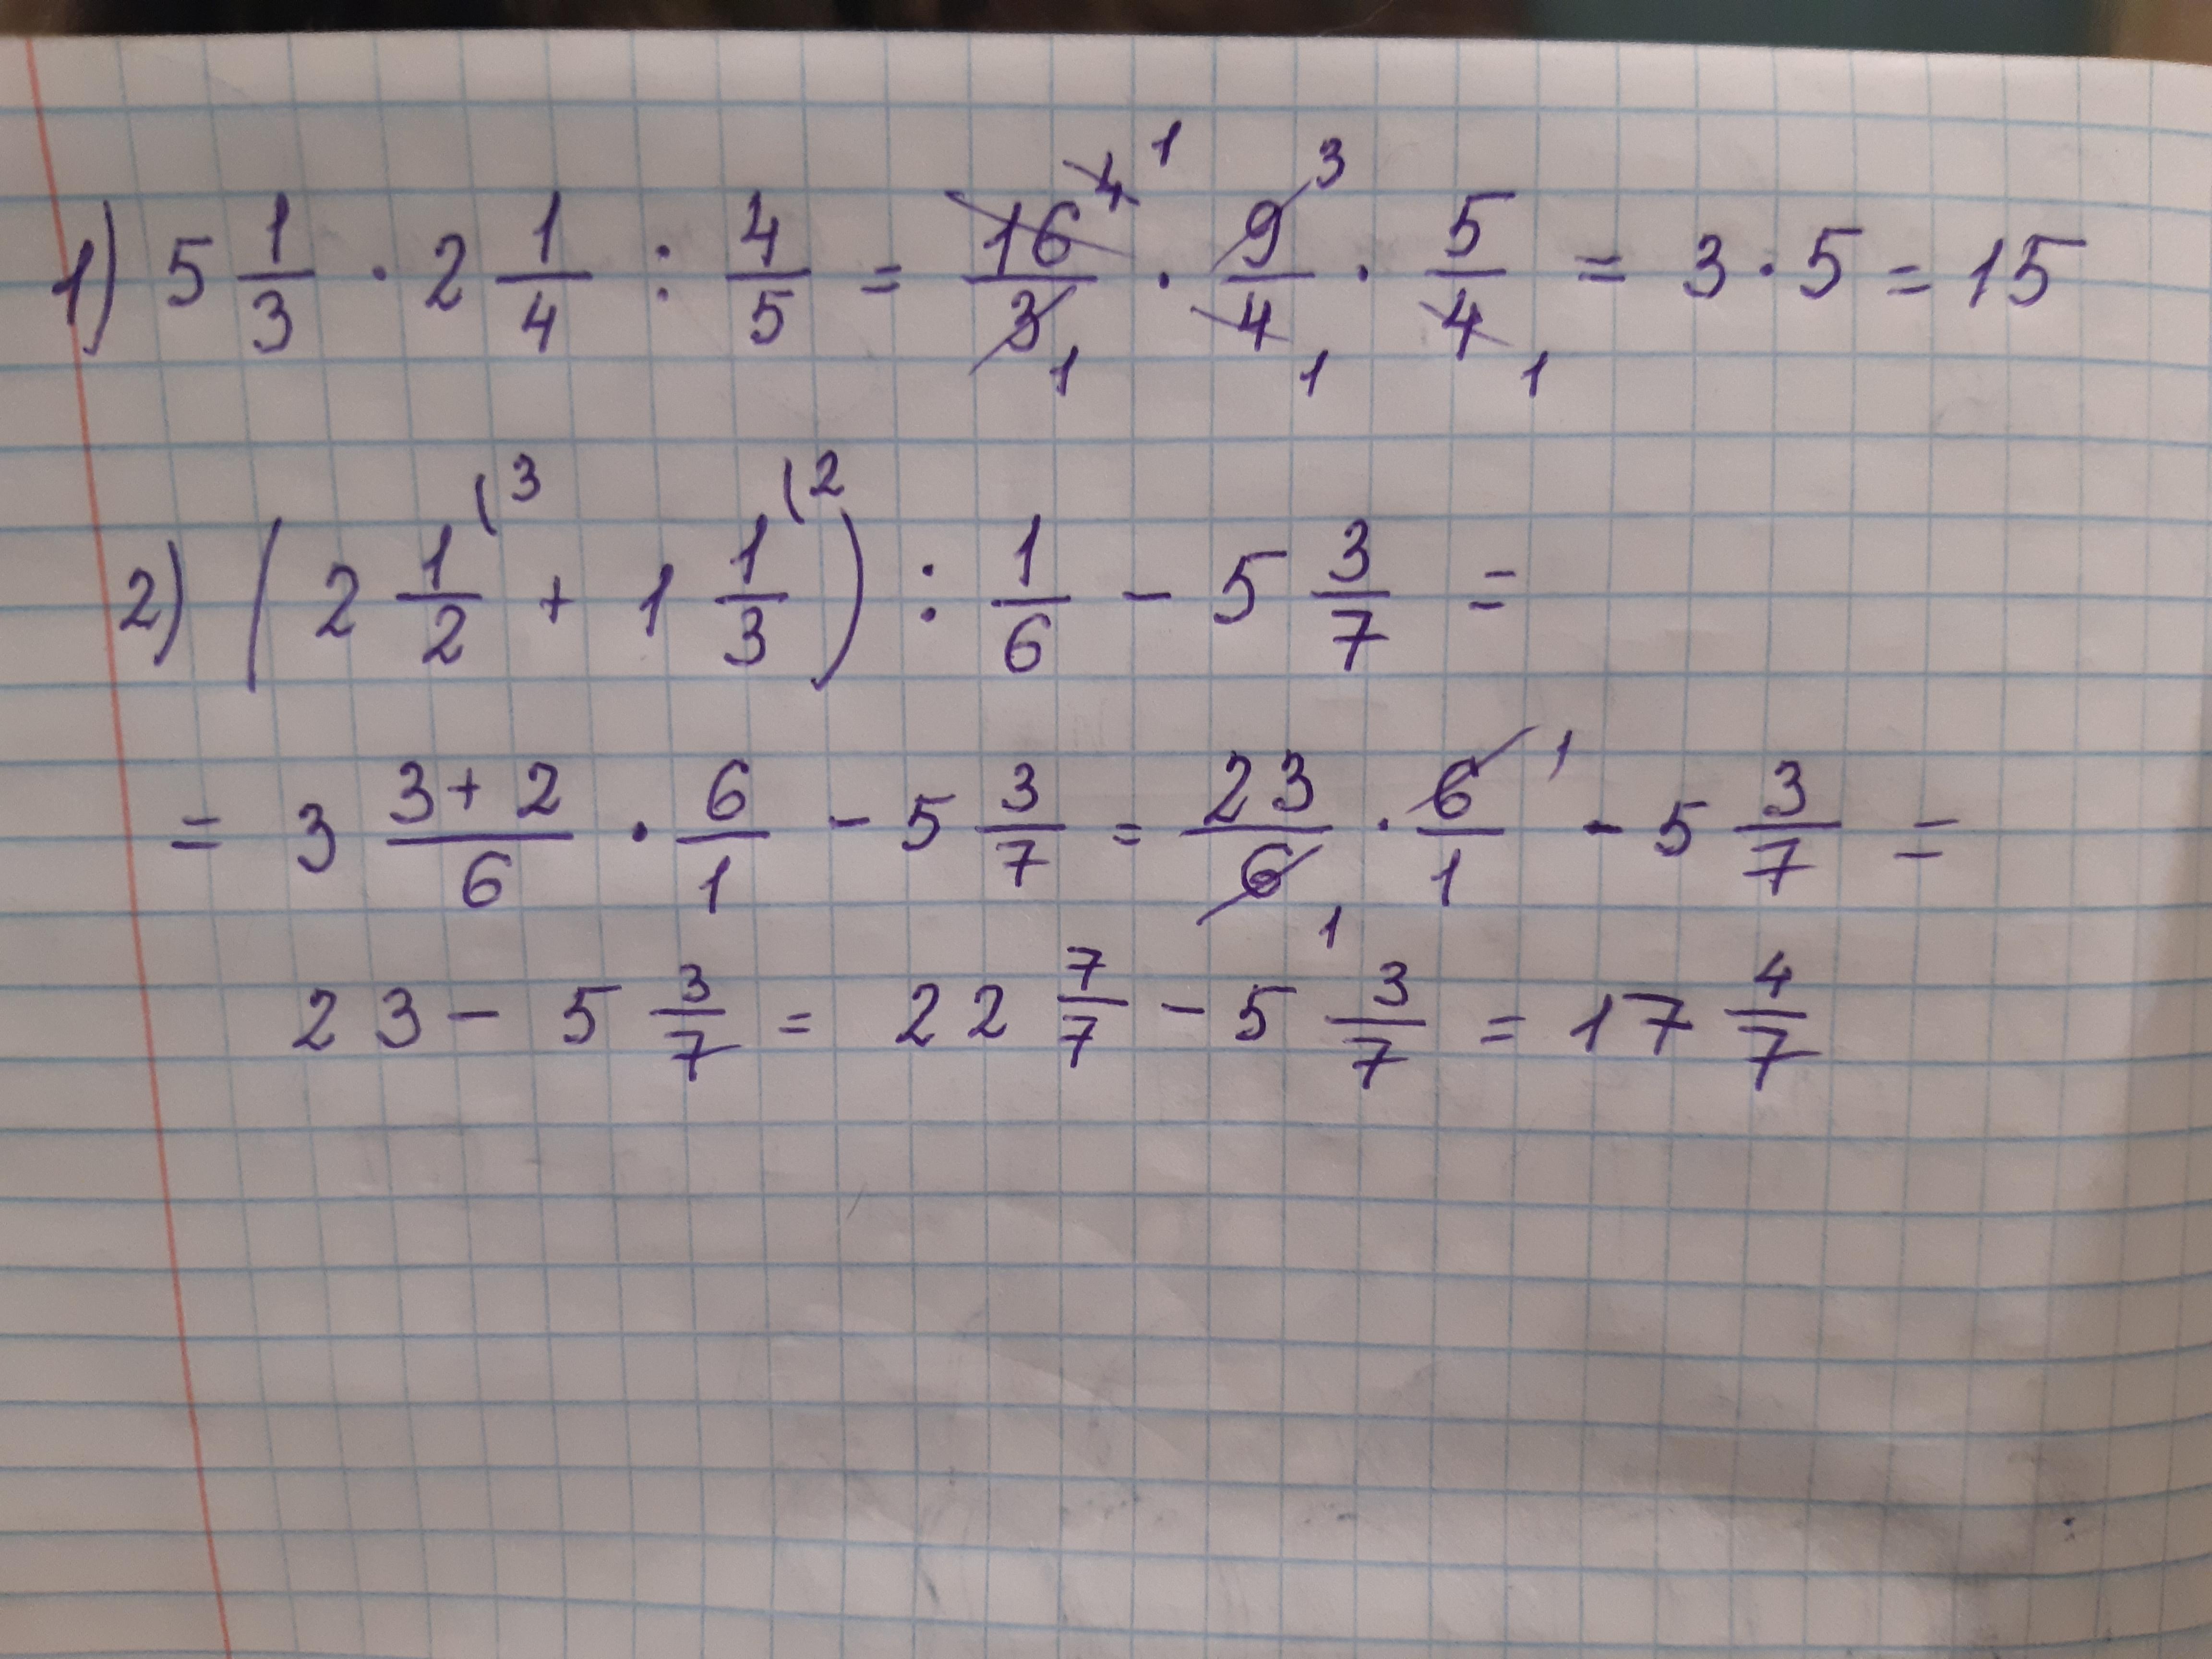 1) 5 1/3 · 2 1/4 : 4/5 = 16/3 · 9/4 · 5/4 = 3 · 5 = 15
2) (2 1/2 (3 + 1 1/3 (2) : 1/6 - 5 3/7 =
= 3 3+2/6 · 6/1 - 5 3/7 = 23/6 · 6/1 - 5 3/7 =
23 - 5 3/7 = 22 7/7 - 5 3/7 = 17 4/7